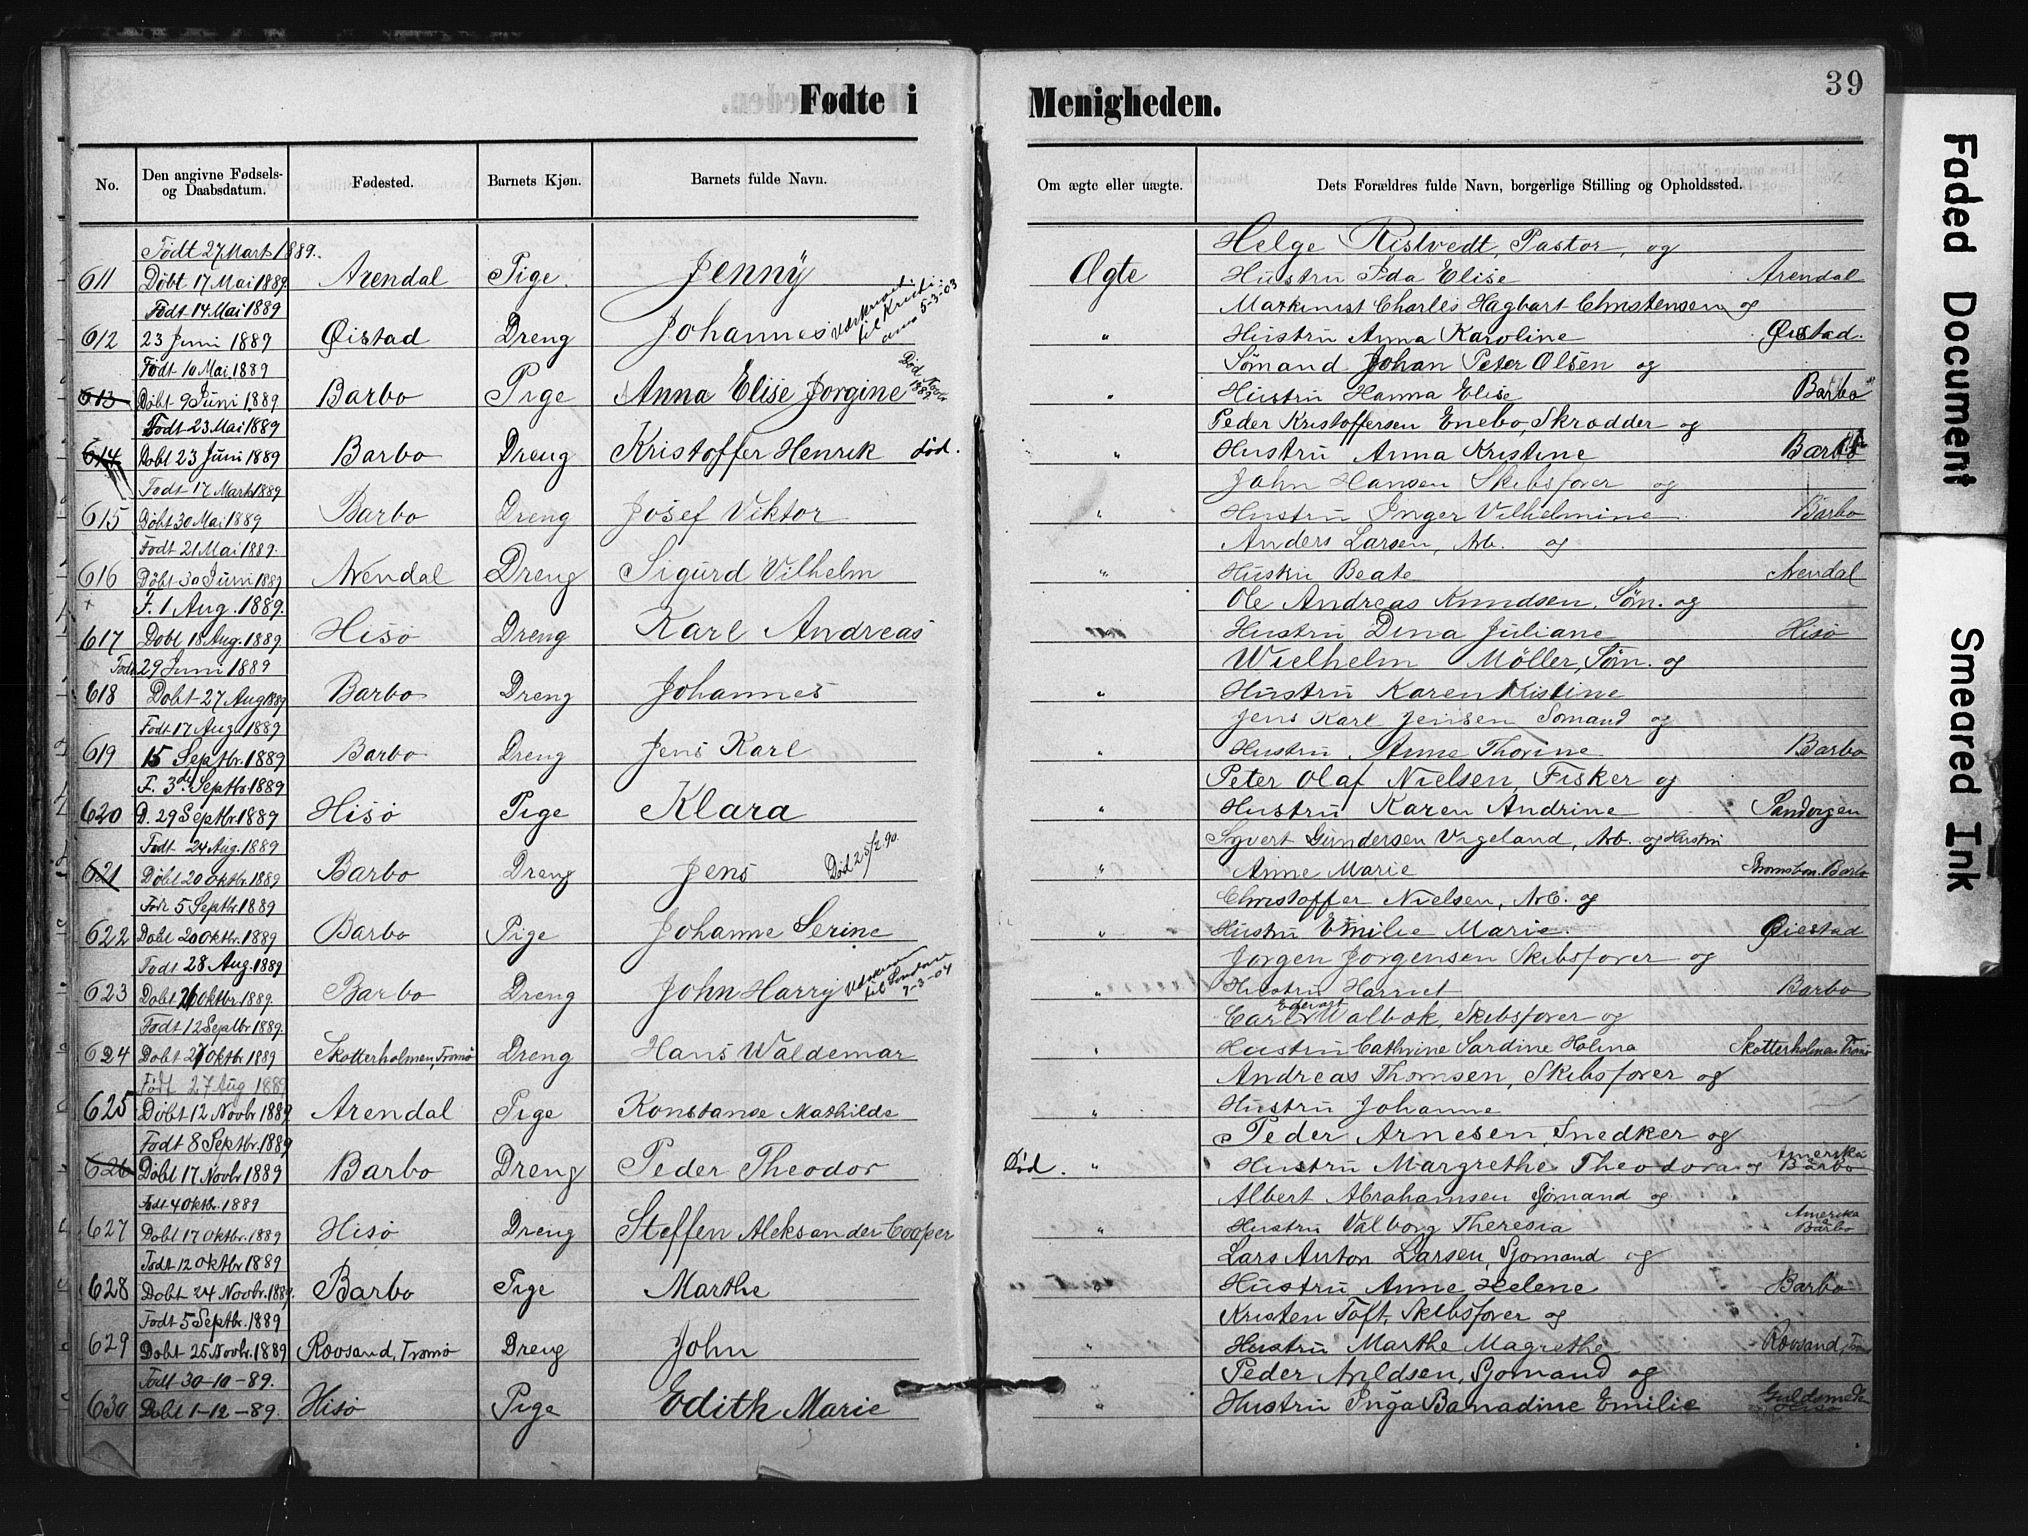 Fødte i Menigheden. 39
No. Den angivne Fødsels- og Daabsdatum. Fødested. Barnets Kjøn. Barnets fulde Navn. Om ægte eller uægte. Dets Forældres fulde Navn, borgerlige Stilling og Opholdssted.
Født 27 Mart 1889. Helge Ristvedt, Pastor, og
611 Døbt 17 Mai 1889 Arendal Pige. Jenny Ægte Hustru Ida Elise Arendal
Født 14 Mai 1889 Maskinist Charles Hagbart Christensen og
612 23 Juni 1889 Øistad Dreng Johannes til Kristiania 5-3-03 " Hustru Anna Karoline Øistad.
Født 10 Mai 1889 Sømand Johan Peter Olsen og
613 Døbt 9 Juni 1889 Barbo Pige Anna Elise Jorgine Død Novbr 1889 " Hustru Hanna Elise Barbo
Født 23 Mai 1889 Peder Kristoffersen Enebo, Skrædder og
614 Døbt 23 Juni 1889 Barbo Dreng Kristoffer Henrik død. " Hustru Anna Kristine Barbo
Født 17 Mart 1889 John Hansen Skibsfører og
615 Døbt 30 Mai 1889 Barbo Dreng Josef Viktor " Hustru Inger Vilhelmine Barbo
Født 21 Mai 1889. Anders Larsen, Arb. og
616 Døbt 30 Juni 1889 Arendal Dreng Sigurd Vilhelm " Hustru Beate Arendal
F. 1 Aug. 1889. Ole Andreas Knudsen, Søm. og
617 Døbt 18 Aug. 1889. Hisø Dreng Karl Andreas " Hustru Dina Juliane Hisø
Født 29 Juni 1889 Wielhelm Möller, Søm. og
618 Døbt 27 Aug 1889 Barbo Dreng Johannes " Hustru Karen Kristine
Født 17 Aug 1889 Jens Karl Jensen Sømand og
619 15 Septbr. 1889 Barbo Dreng Jens Karl " Hustru Anne Thorine Barbo
F. 3de Septbr. 1889 Peter Olaf Nielsen, Fisker og
620 D. 29 Septbr. 1889 Hisø Pige Klara " Hustru Karen Andrine Sandvigen
Født 24 Aug. 1889 Syvert Gundersen Vigeland, Arb. og Hustru
621 Døbt 20 Oktbr. 1889 Barbo Dreng Jens Død 25/2 90 " Anne Marie Barbo
Født 5 Septbr. 1889 Christoffer Nielsen, Arb. og
622 Døbt 20 Oktbr. 1889 Barbo Pige Johanne Serine " Hustru Emilie Marie. Øiestad
Født 28 Aug. 1889 Jørgen Jørgensen Skibsfører og
623 Døbt 21 Oktbr. 1889. Barbo Dreng John Harry til London 7-3-04 " Hustru Harriet Barbo
Født 12 Septbr 1889. Carl Edevart Walbok, Skibsfører og
624 Døbt 27 Oktbr 1889 Skotterholmen, Tromø Dreng Hans Waldemar " Hustru Cathrine Sardine Holina Skotterholmen Tromø
Født 27 Aug 1889 Andreas Thomsen, Skibsfører og
625 Døbt 12 Novbr 1889 Arendal Pige Konstanse Mathilde " Hustru Johanne
Født 8 Septbr. 1889 Peder Arnesen, Snedker og
626 Døbt 17 Novbr 1889 Barbo Dreng Peder Theodor Død. " Hustru Margrethe Theodora og Amerika Barbo
Født 4 Oktbr. 1889 Albert Abrahamsen Sømand og
627 Døbt 17 Oktbr. 1889 Hisø Dreng Steffen Aleksander Cooper " Hustru Valborg Theresia Amerika Barbo
Født 12 Oktbr 1889 Lars Anton Larsen, Sjømand og
628 Døbt 24 Novbr. 1889. Barbo Pige Marthe Hustru Anne Helene Barbo
Født 5 Septbr. 1889 Kristen Toft, Skibsfører og
629 Døbt 25 Novbr. 1889 Rovsand, Tromø Dreng John " Hustru Marthe Magrethe Rovsand, Tromø
Født 30-10-89. Peder Arildsen, Sjømand og
630 Døbt 1-12-89. Hisø Pige Edith Marie " Hustru Inga Banadine Emilie Hisø
Faded Document
Smeared Ink